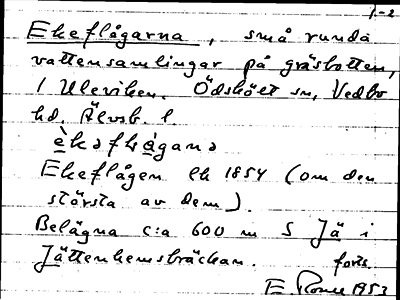 1-2
Ekeflågarna, små runda
vattensamlingar på gräsbotten,
i Uleviken. Ödskölt sn, Vedbo
hd, Älvsb. l.
Ekeflågen Ek 1854 (om den
största av dem).
Belägna c:a 600 m S Jä i
Jättenhemsbräckan. forts.
E. 1953